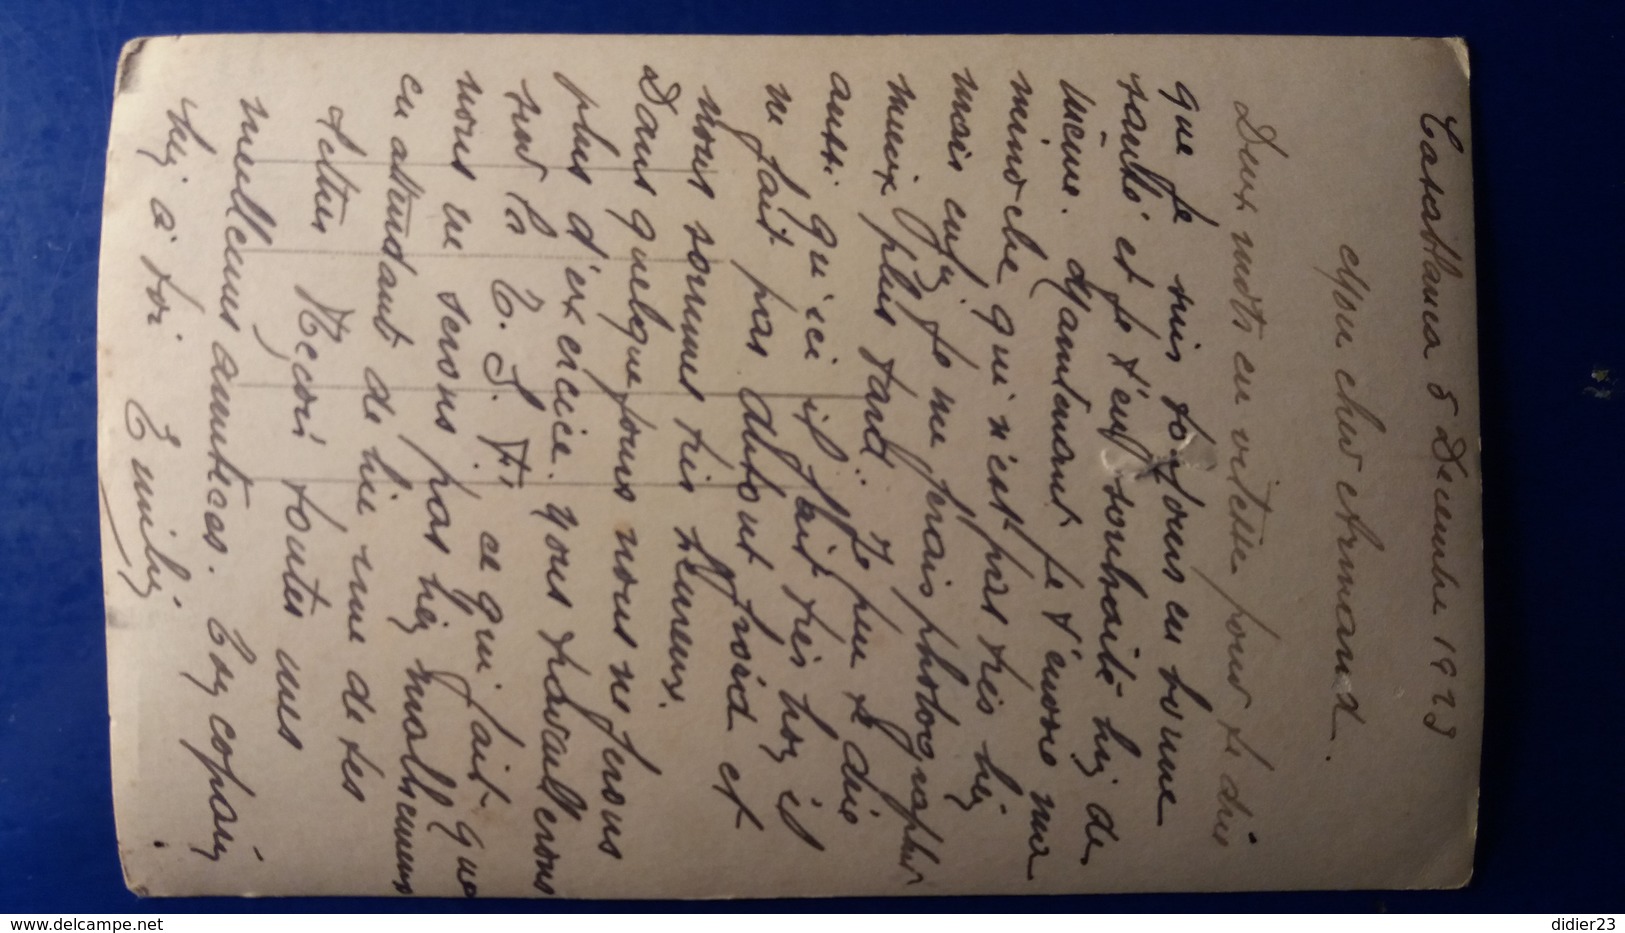 Casablanca 5 Decembre 1923
Mon cher Armand.
Deux mots en vitesse pour te dire
que je suis toujours en bonne
santé et je t'en souhaite biez de
même. Maintenant je t'envoie ma
minoche qui n'est pas très biz
mais enfz. je me ferais photographier
mieux plus tard. Je peu te dire
aussi qu'ici il fait très boz il
ne fait pas dutout froid et
nous sommes très heureux.
Dans quelque jours nous ne ferons
plus d'exercice. nous travaillerons
sur la T. S. F. ce qui fait que
nous ne serons pas biez malheureux
en attendant de lire une de tes
lettres Recoi toutes mes
meilleures amitiées. Toz copaiz
biz à toi Emile
didier23